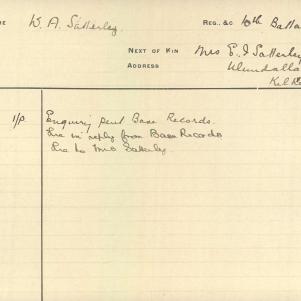 ME W. A. Satterley. REG., &C. 10th Batta
NEXT OF KIN Mrs E. I. Satterley
ADDRESS Wundalla
Kil Ra
1/P. Enquiry sent Base Records.
in reply from Base Records
to Mrs Satterley